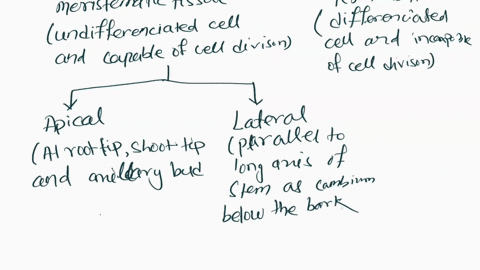 meristematic tissue
(undifferenciated cell
and capable of cell divison)
(differenciated
cell and incapable
of cell divison)
Apical
(At root tip, shoot tip
and axillary bud
Lateral
(parallel to
long axis of
stem as cambium
below the bark